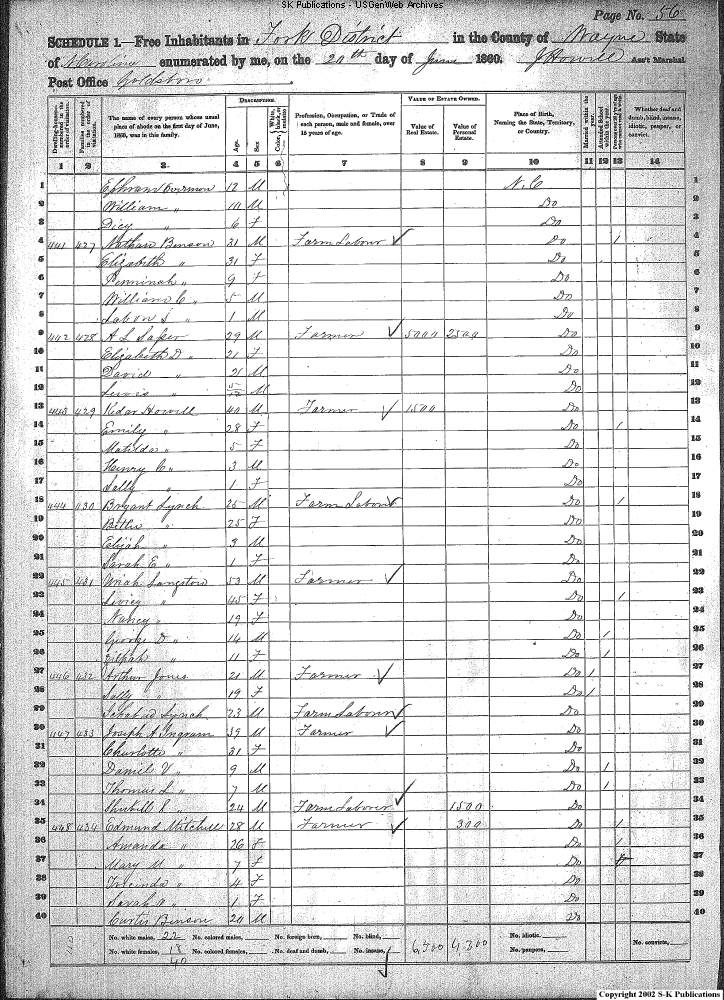 SK Publications - USGenWeb Archives
Page No. 56
SCHEDULE 1.—Free Inhabitants in Fork District in the County of Wayne State
of N Carolina enumerated by me, on the 20th day of June 1860. J Howell Ass't Marshal
Post Office Goldsboro
Dwelling-houses—numbered in the order of visitation.
Families numbered in the order of visitation.
The name of every person whose usual place of abode on the first day of June, 1860, was in this family.
DESCRIPTION.
Age.
Sex.
Color, White, black, or mulatto
Profession, Occupation, or Trade of each person, male and female, over 15 years of age.
VALUE OF ESTATE OWNED.
Value of Real Estate.
Value of Personal Estate.
Place of Birth, Naming the State, Territory, or Country.
Married within the year.
Attended School within the year.
Whether deaf and dumb, blind, insane, idiotic, pauper, or convict.
1 2 3 4 5 6 7 8 9 10 11 12 13 14
1 Ephram Overman 12 M N.C 1
2 William " 10 M Do 2
3 Dicy " 6 F Do 3
4 441 427 Nathan Benson 31 M Farm Labour ✓ Do / 4
5 Elizabeth " 31 F Do 5
6 Penninah " 9 F Do 6
7 William C " 5 M Do 7
8 " 1 M Do 8
9 442 428 A L Saser 29 M Farmer ✓ 5000 2500 Do 9
10 Elizabeth D " 21 F Do 10
11 David " 21 M Do 11
12 Lewis " 5/12 M Do 12
13 443 429 Kedar Howell 40 M Farmer ✓ 1500 Do 13
14 Emily " 28 F Do / 14
15 Matilda " 5 F Do 15
16 Henry C " 3 M Do 16
17 Sally " 1 F Do 17
18 444 430 Bryant Lynch 25 M Farm Labour ✓ Do / 18
19 Bettie " 25 F Do 19
20 Elijah " 3 M Do 20
21 Sarah E " 1 F Do 21
22 445 431 Uriah Langston 53 M Farmer ✓ Do 22
23 " 45 F Do / 23
24 Nancy " 19 F Do 24
25 George D " 14 M Do / 25
26 Zilpah " 11 F Do / 26
27 446 432 Arthur Jones 21 M Farmer ✓ Do / 27
28 Sally " 19 F Do / 28
29 Lynch 23 M Farm Labourer ✓ Do 29
30 447 433 Joseph A Ingram 39 M Farmer ✓ Do 30
31 Charlotte " 31 F Do 31
32 Daniel V " 9 M Do / 32
33 Thomas L " 7 M Do / 33
34 24 M Farm Laborer ✓ 1500 Do 34
35 448 434 Edmund Mitchell 28 M Farmer ✓ 300 Do / 35
36 Amanda " 26 F Do / 36
37 Mary M " 7 F Do 37
38 " 4 F Do 38
39 Sarah A " 1 F Do 39
40 Curtis Benson 20 M Do 40
No. white males, 22 No. colored males, No. foreign born, No. blind, 6,500 4,300 No. idiotic, No. convicts,
No. white females, 18 No. colored females, No. deaf and dumb, No. insane, No. paupers,
40
Copyright 2002 S-K Publications